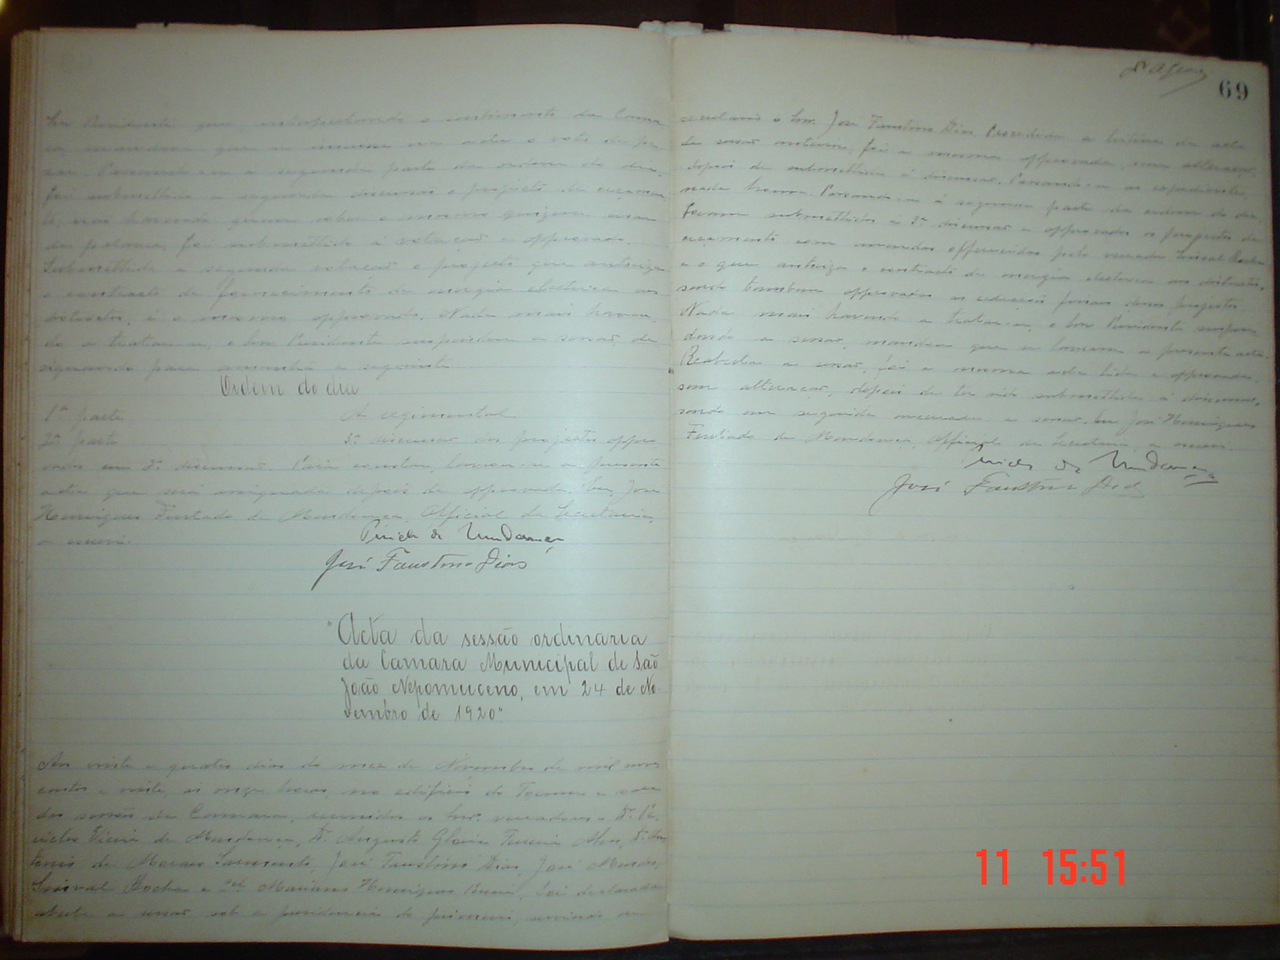 Snr. Presidente que, interpretando o sentimento da Cama
ra, mandava que se inserisse em acta o voto de pe
sar. Passando-se á segunda parte da ordem do dia,
foi submettido a segunda discussão o projecto de orçamen
to; não havendo quem sobre o mesmo quizesse usar
da palavra, foi submettido á votação e approvado.
Submettido a segunda votação o projecto que autoriza
o contracto de fornecimento de energia electrica aos
districtos, é o mesmo approvado. Nada mais haven
do a tratar-se, o Snr Presidente suspendeu a sessão, de
signando para amanhã a seguinte
Ordem do dia
1ª parte A regimental
2ª parte 3ª discussão dos projectos appro
vados em 2ª discussão. Para constar, lavrou-se a presente
acta que será assignada depois de approvada. Eu, José
Henriques Furtado de Mendonça, Official da Secretaria,
o escrevi.
de Mendonça
José Faustino Dias
"Acta da sessão ordinaria
da Camara Municipal de São
João Nepomuceno, em 24 de No
vembro de 1920"
Aos vinte e quatro dias do mez de Novembro de mil nove
centos e vinte, ás onze horas, no edificio do Forum e sala
das sessões da Camara, reunidos os Snrs. vereadores Dr. Pe
ricles Vieira de Mendonça, Dr. Augusto Gloria Ferreira Alves, Dr. An
tonio de Moraes Sarmento, José Faustino Dias, José Mendes,
Rocha e Cel. Henriques, foi declarada
aberta a sessão, sob a presidencia do primeiro, servindo de
69
secretario o Snr. José Faustino Dias. Procedida a leitura da acta
da sessão anterior, foi a mesma approvada, sem alteração,
depois de submettida á discussão. Passando-se ao expediente,
nada houve. Passando-se á segunda parte da ordem do dia,
foram submettidos á 3ª discussão e approvados os projectos de
orçamento com emendas offerecidas pelo vereador Rocha
e o que autoriza o contracto de energia electrica aos districtos,
sendo tambem approvadas as redacções finaes desses projectos.
Nada mais havendo a tratar-se, o Snr Presidente suspen
deu a sessão, mandou que se lavrasse a presente acta.
Reaberta a sessão, foi a mesma acta lida e approvada,
sem alteração, depois de ter sido submettida á discussão,
sendo em seguida encerrada a sessão. Eu José Henriques
Furtado de Mendonça, Official da Secretaria o escrevi.
de Mendonça
José Faustino Dias
11 15:51